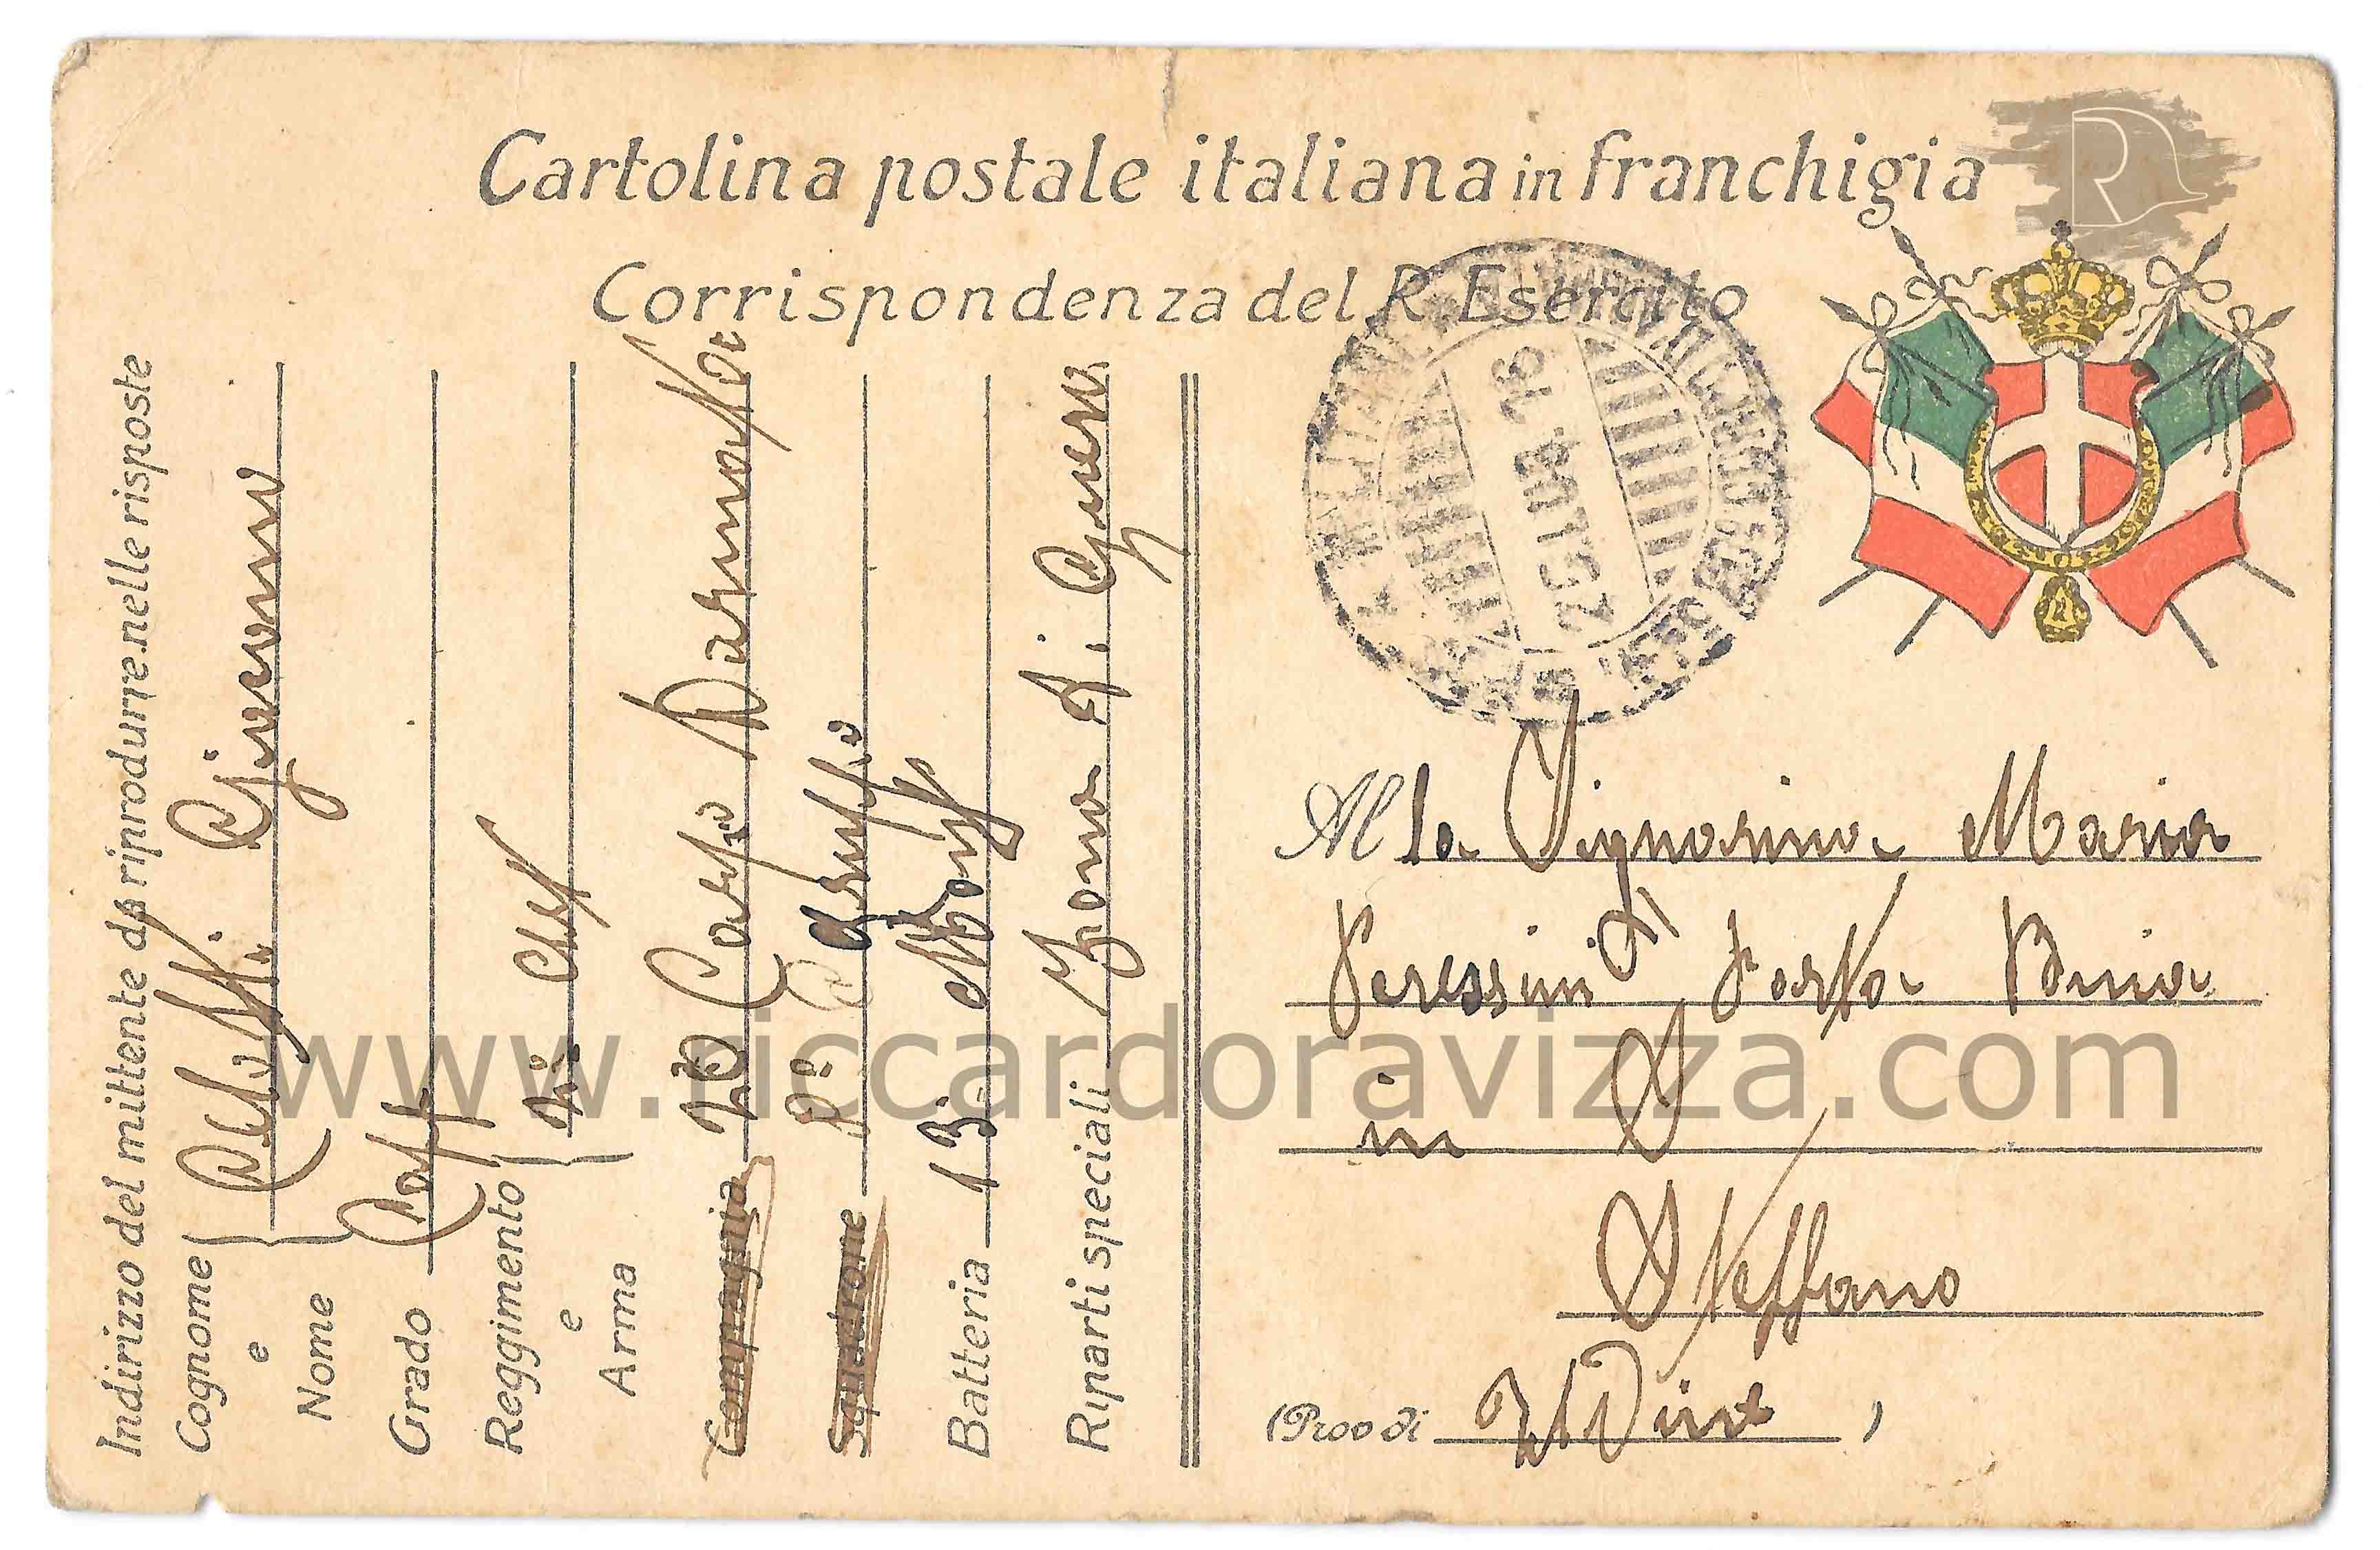 Cartolina postale italiana in franchigia
Corrispondenza del R. Esercito
Indirizzo del mittente da riprodurre nelle risposte
Cognome e Nome Giovanni
Grado Cap
Reggimento e Arma Art
Compagnia 20 Corpo Darmata
Squadrone
Batteria 13 Montag
Riparti speciali Zona di Guerra
MILITARE
23 LUG 18
Alla Signorina Maria
Peressini Porta Buia
in S
Steffano
(Prov di Udine)
R
www.riccardoravizza.com